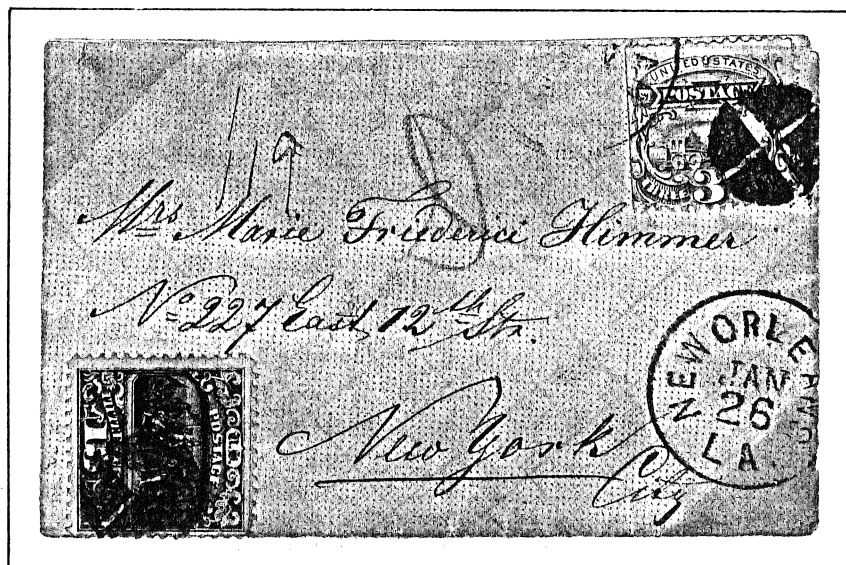 UNITED STATES
POSTAGE
3
Mrs Marie Friederici Himmer
No 227 East, 12th Str.
New York
City
NEW ORLEANS
JAN
26
LA.
U.S. POSTAGE
15